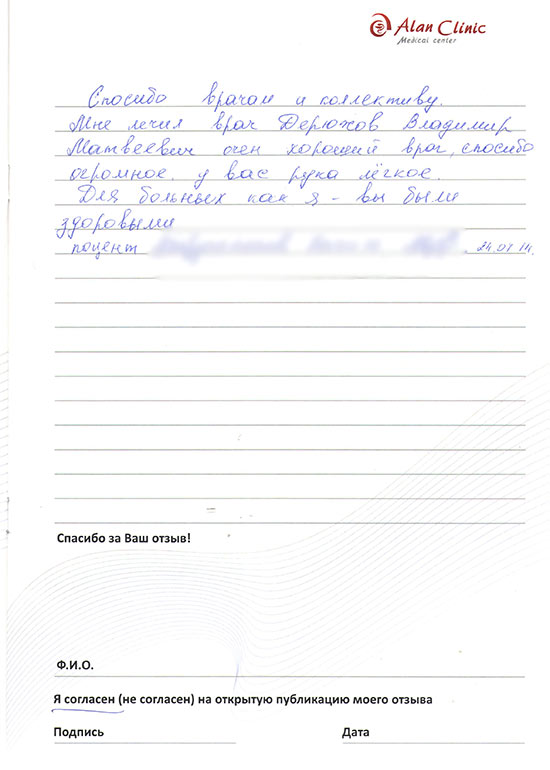 Alan Clinic
Medical center
Спосибо врачам и коллективу.
Мне лечил врач Дерюжов Владимир
Матвеевич очен хороший врач, спосибо
огромное. у вас рука лёгкое.
Для больных как я - вы были
здоровыми
поцент 24.07.14.
Спасибо за Ваш отзыв!
Ф.И.О.
Я согласен (не согласен) на открытую публикацию моего отзыва
Подпись Дата